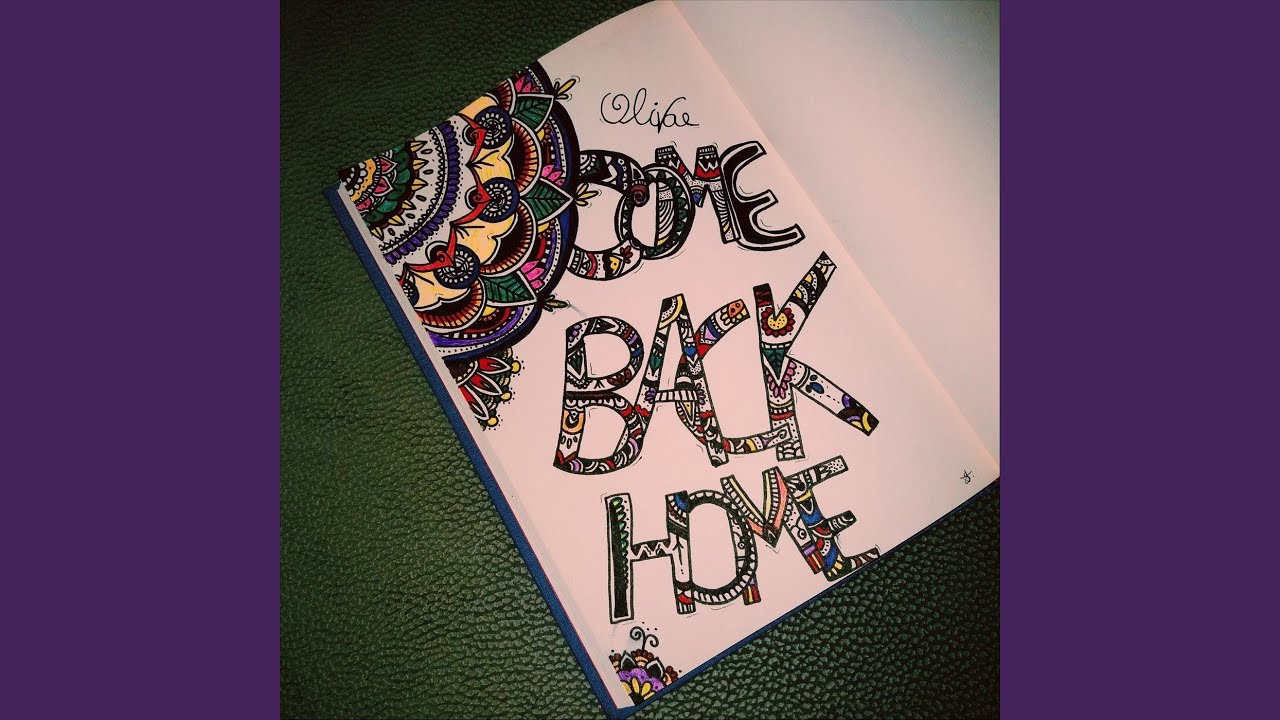 Olivae
COME
BACK
HOME